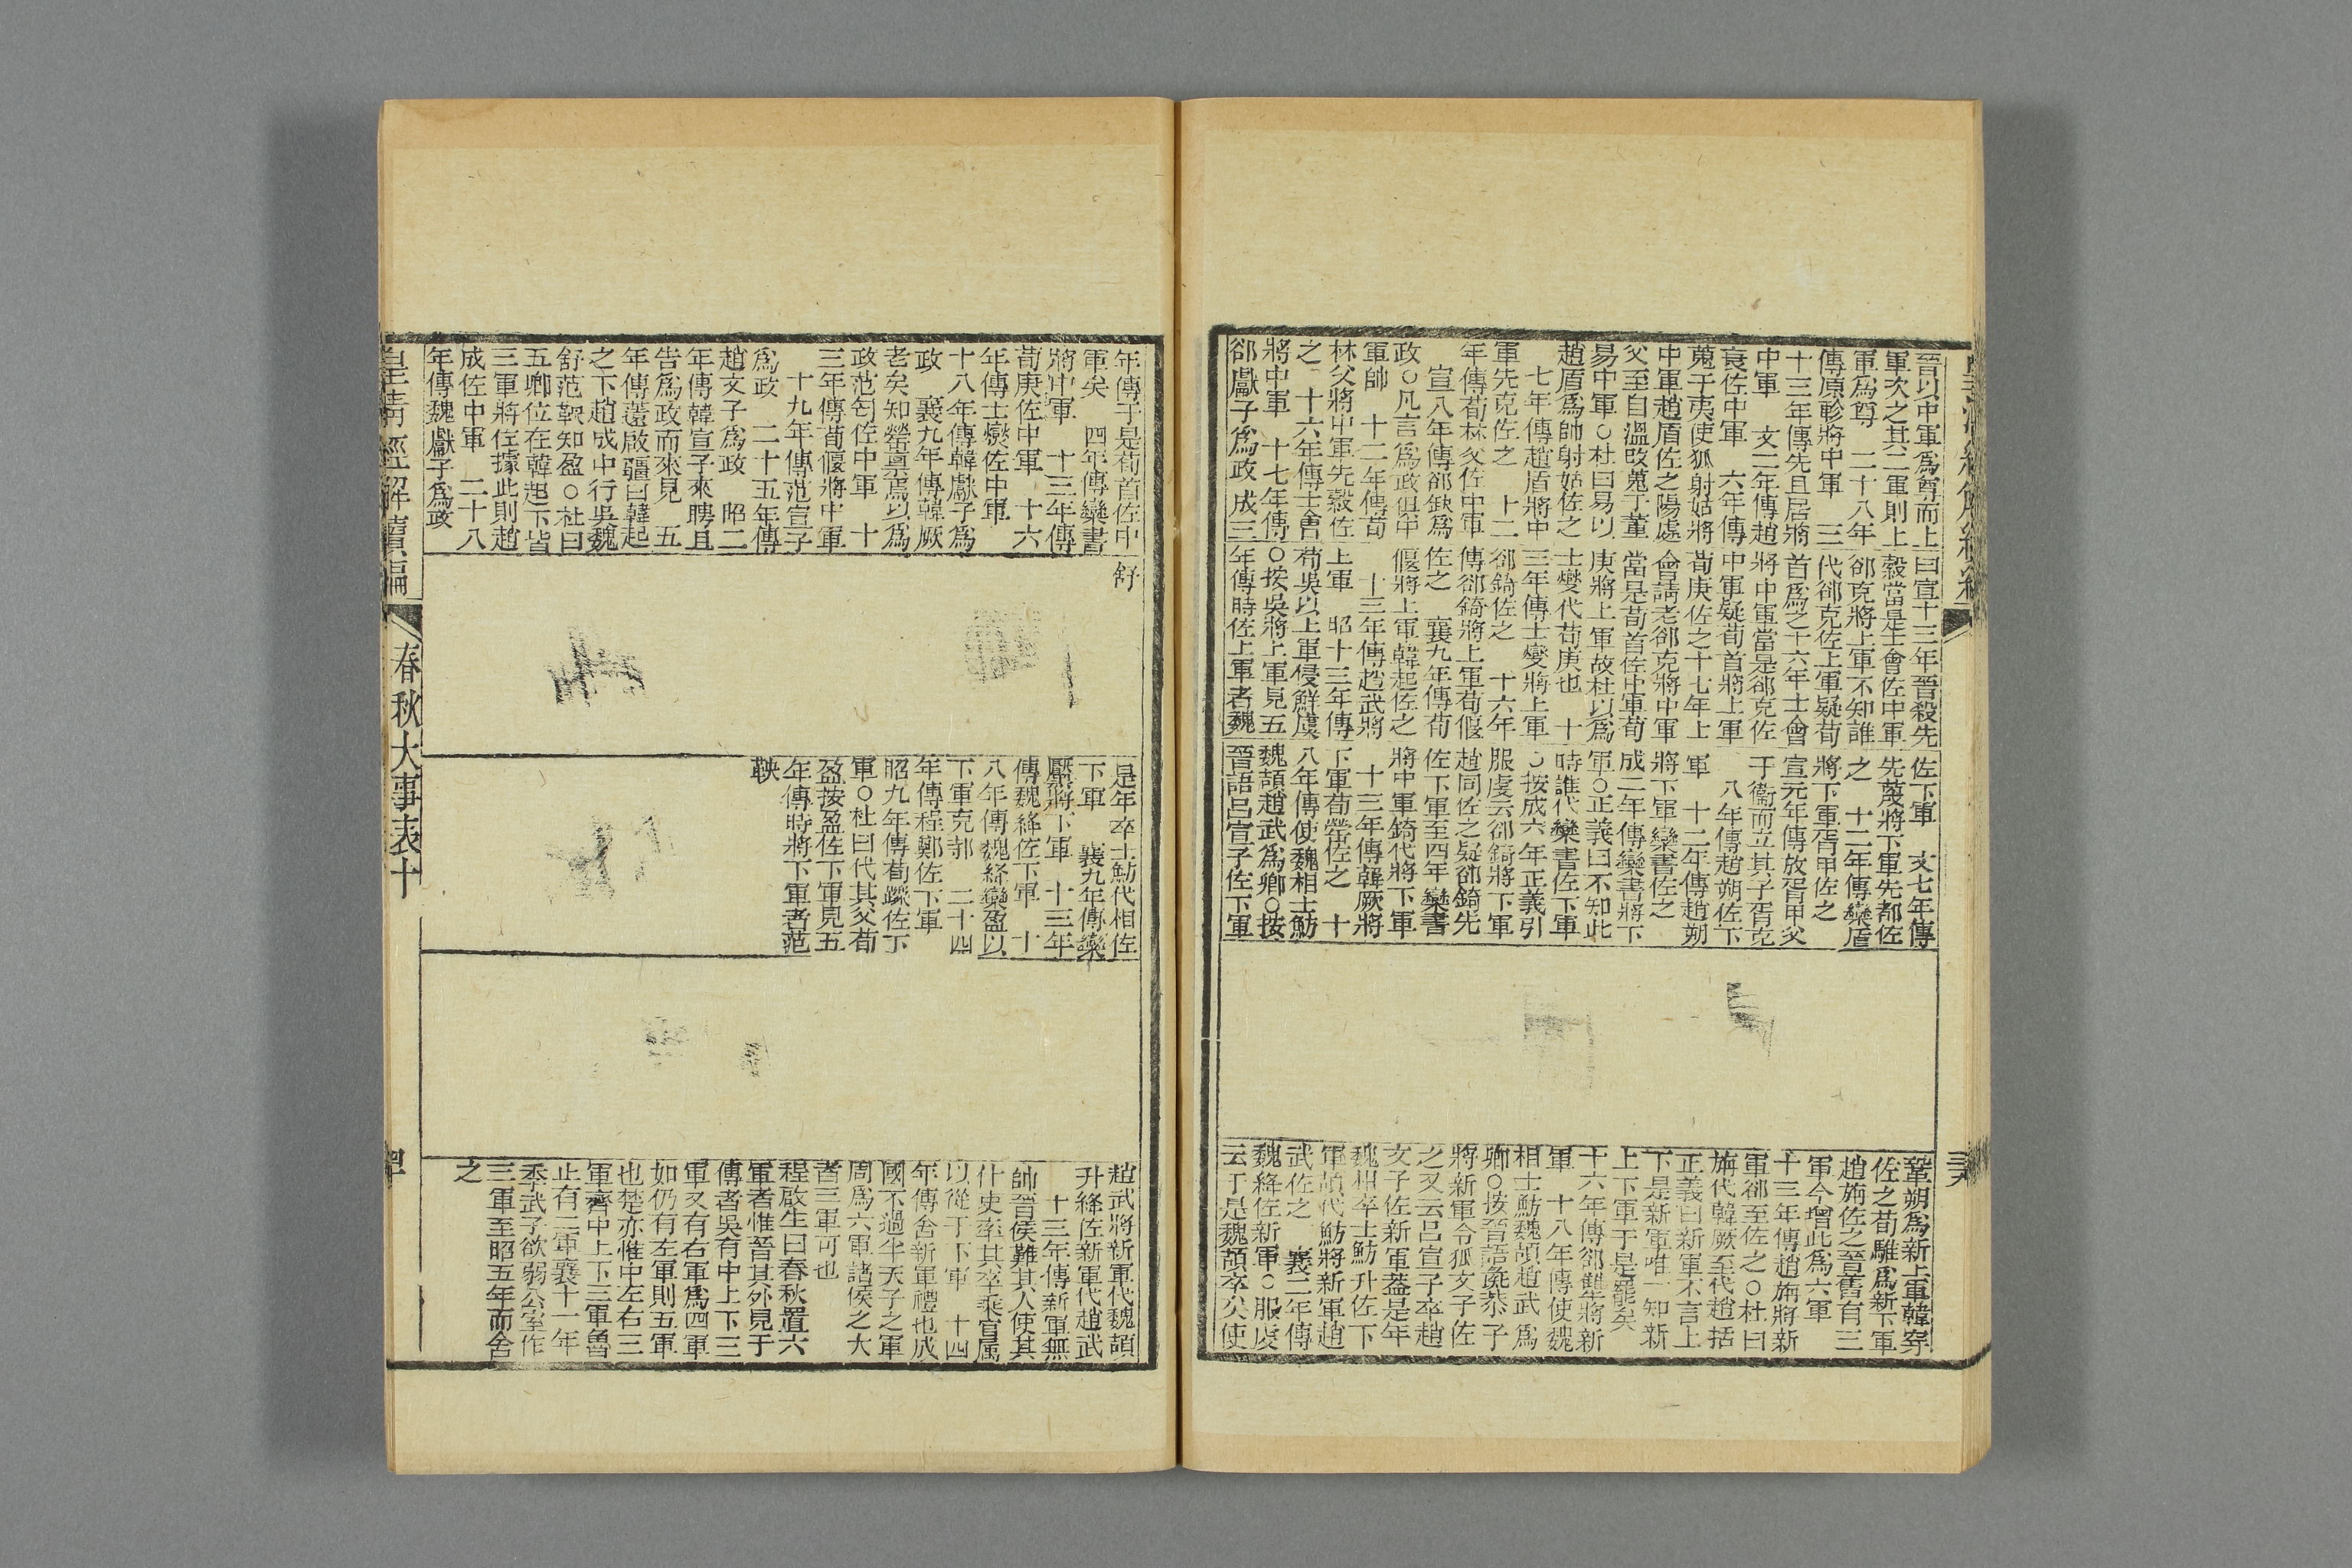 晉以中軍爲尊而上
軍次之其二軍則上
軍爲尊　二十八年
傳原軫將中軍　三
十三年傳先且居將
中軍　文二年傳趙
衰佐中軍　六年傳
蒐于夷使狐射姑將
中軍趙盾佐之陽處
父至自溫改蒐于董
易中軍○杜曰易以
趙盾爲帥射姑佐之
七年傳趙盾將中
軍先克佐之　十二
年傳荀林父佐中軍
宣八年傳郤缺爲
政○凡言爲政俱中
軍帥　十二年傳荀
林父將中軍先縠佐
之　十六年傳士會
將中軍　十七年傳
郤獻子爲政　成三
曰宣十三年晉殺先
縠當是士會佐中軍
郤克將上軍不知誰
代郤克佐上軍疑荀
首爲之十六年士會
將中軍當是郤克佐
中軍疑荀首將上軍
荀庚佐之十七年士
會請老郤克將中軍
當是荀首佐中軍荀
庚將上軍故杜以爲
士燮代荀庚也　十
三年傳士燮將上軍
郤錡佐之　十六年
傳郤錡將上軍荀偃
佐之　襄九年傳荀
偃將上軍韓起佐之
十三年傳趙武將
上軍　昭十三年傳
荀吳以上軍侵鮮虞
○按吳將上軍見五
年傳時佐上軍者魏
佐下軍　文七年傳
先蔑將下軍先都佐
之　十二年傳欒盾
將下軍胥甲佐之
宣元年傳放胥甲父
于衞而立其子胥克
八年傳趙朔佐下
軍　十二年傳趙朔
將下軍欒書佐之
成二年傳欒書將下
軍○正義曰不知此
時誰代欒書佐下軍
○按成六年正義引
服虔云郤錡將下軍
趙同佐之疑郤錡先
佐下軍至四年欒書
將中軍錡代將下軍
十三年傳韓厥將
下軍荀罃佐之　十
八年傳使魏相士魴
魏頡趙武爲卿○按
晉語呂宣子佐下軍
鞏朔爲新上軍韓穿
佐之荀騅爲新下軍
趙旃佐之晉舊有三
軍今增此爲六軍
十三年傳趙旃將新
軍郤至佐之○杜曰
旃代韓厥至代趙括
正義曰新軍不言上
下是新軍唯一知新
上下軍于是罷矣
十六年傳郤犨將新
軍　十八年傳使魏
相士魴魏頡趙武爲
卿○按晉語彘恭子
將新軍令狐文子佐
之又云呂宣子卒趙
文子佐新軍蓋是年
魏相卒士魴升佐下
軍頡代魴將新軍趙
武佐之　襄二年傳
魏絳佐新軍○服虔
云于是魏頡卒矣使
三九
年傳于是荀首佐中
軍矣　四年傳欒書
將中軍　十三年傳
荀庚佐中軍　十六
年傳士燮佐中軍
十八年傳韓獻子爲
政　襄九年傳韓厥
老矣知罃稟焉以爲
政范匄佐中軍　十
三年傳荀偃將中軍
十九年傳范宣子
爲政　二十五年傳
趙文子爲政　昭二
年傳韓宣子來聘且
告爲政而來見　五
年傳薳啟疆曰韓起
之下趙成中行吳魏
舒范鞅知盈○杜曰
五卿位在韓起下皆
三軍將佐據此則趙
成佐中軍　二十八
年傳魏獻子爲政
舒
是年卒士魴代相佐
下軍　襄九年傳欒
黶將下軍　十三年
傳魏絳佐下軍　十
八年傳魏絳欒盈以
下軍克邿　二十四
年傳程鄭佐下軍
昭九年傳荀躒佐下
軍○杜曰代其父荀
盈按盈佐下軍見五
年傳時將下軍者范
鞅
趙武將新軍代魏頡
升絳佐新軍代趙武
十三年傳新軍無
帥晉侯難其人使其
什吏率其卒乘官屬
以從于下軍　十四
年傳舍新軍禮也成
國不過半天子之軍
周爲六軍諸侯之大
者三軍可也
程啟生曰春秋置六
軍者惟晉其外見于
傳者吳有中上下三
軍又有右軍爲四軍
如仍有左軍則五軍
也楚亦惟中左右三
軍齊中上下三軍魯
止有二軍襄十一年
季武子欲弱公室作
三軍至昭五年而舍
之
皇清經解續編
春秋大事表十